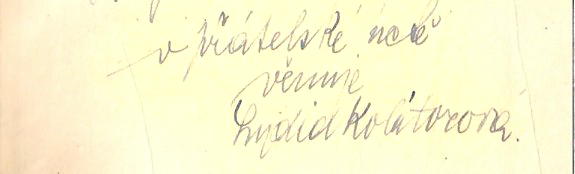 v přátelské úctě
věnuje
Lydia Kolátorová.